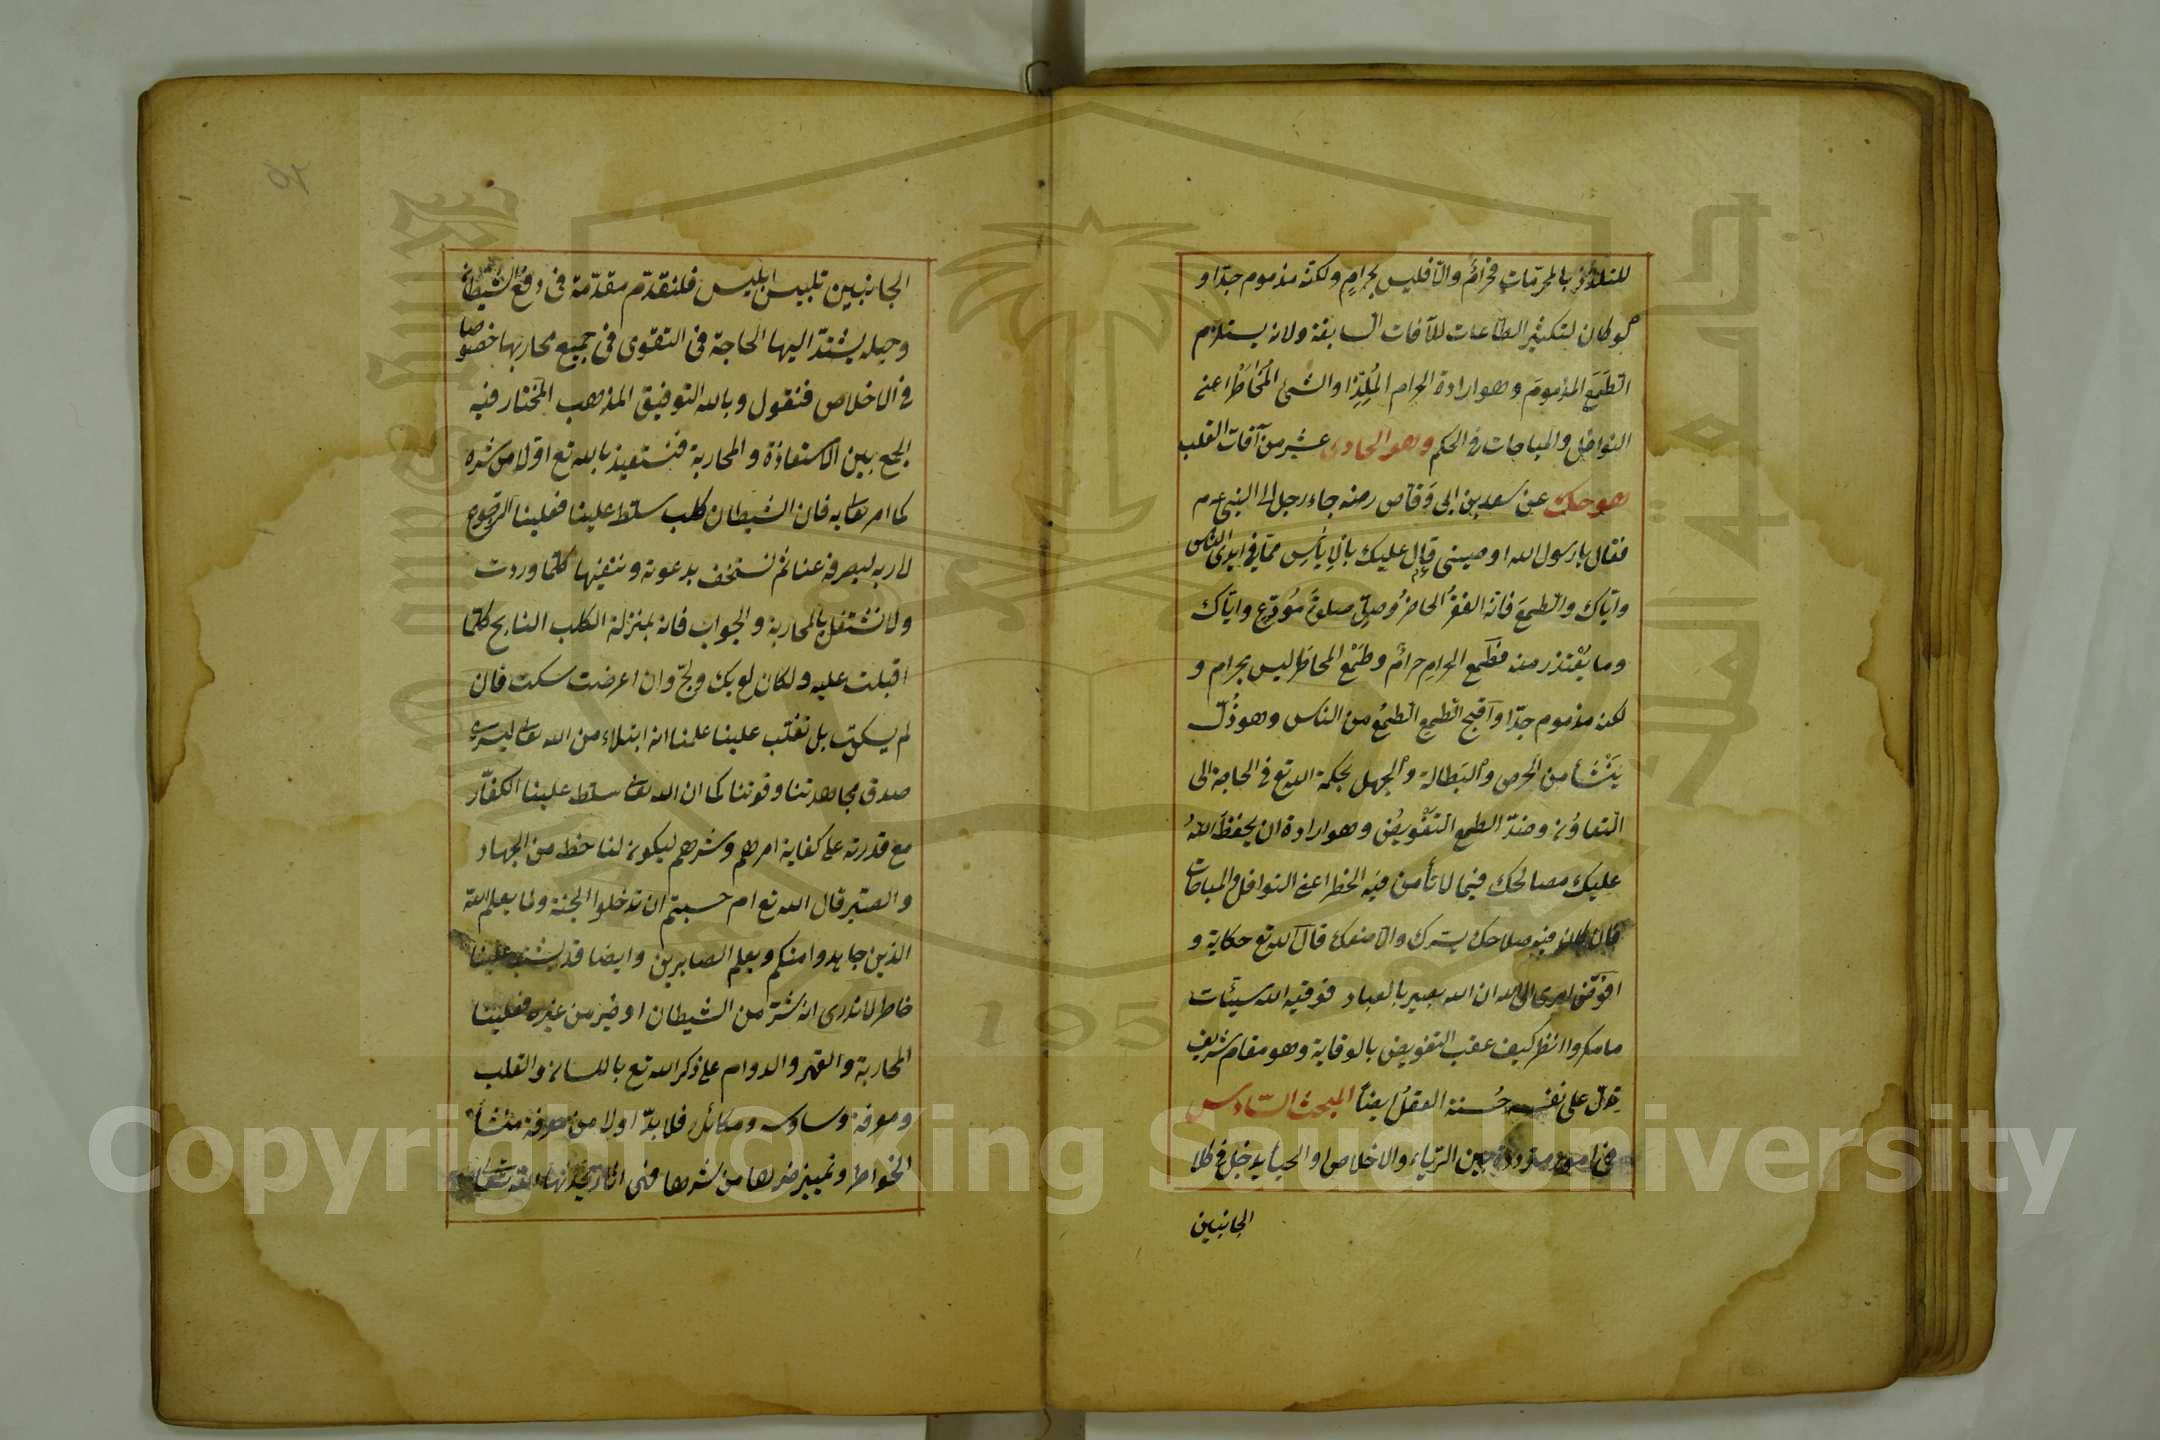 للتلذّذ بالمحرّمات فحرامٌ والّا فليس بحرامٍ ولكنّه مذموم جدّا و
لو كان لتكثير الطاعات للآفات السابقة ولانه يستلزم
الطمَعَ المذمومَ وهو ارادة الحرام المُلِذّ او الشئ المُخَاطَر اعنى
النوافل والمباحات فى الحكم وهو الحادى عشر من آفات القلب
هو حك عن سعد بن ابى وَقاص رضه جاء رجل الى النبى عم
فقال يا رسول الله اوصينى قال عليك بالايأس ممّا فى ايدى الناس
وايّاك والطمعَ فانّه الفقرُ الحاضرُ وصلِّ صلوةَ مُوَدِّعٍ وايّاك
وما يُعْتذر منه فطَمع الحرامِ حرامٌ وطمْعُ المخاطَر ليس بحرام و
لكنه مذموم جدّا واَقبح الطمعِ الطمعُ من الناس وهو ذُلٌّ
يَنْشَأ من الحرص والبَطالة والجهل بحكمة الله تع فى الحاجة الى
التعاوُن وضدّ الطمع التفْويضُ وهو ارادة ان يحفظ اللهُ
عليك مصالحك فيما لا تأمن فيه الخطر اعنى النوافل والمباحات
فان كان فيه صلاحك يسّرك والا منعك قال الله تع حكاية و
افوّض امرى الى الله ان الله بصير بالعباد فوقيه الله سيّئات
ما مكروا انظر كيف عقب التفويض بالوقاية وهو مقام شريف
يدلّ على نفسه حُسنه العقلُ ايضاً المبحث السّادس
فى امور متردّدة بين الرّياء والاخلاص او الحيأ يدخل فى كلا
الجانبين
الجانبين تلبيس ابليس فلنقدّم مقدّمة فى دفع الشيطان
وحيله يشتدّ اليها الحاجة فى التقوى فى جميع محاربها خصوصا
فى الاخلاص فنقول وبالله التوفيق المذهب المختار فيه
الجمع بين الاستعاذة والمحاربة فنستعيذ بالله تع اوّلا من شره
كما امر تعا به فان الشيطان كلب سلّط علينا فعلينا الرجوع
لا ربه ليصرفه عنا ثم نستخف بدعوته وننفيها كلّما وردت
ولا نشتغل بالمحاربة والجواب فانه بمنزلة الكلب النابح كلّما
اقبلت عليه ولكان لوبك ولجّ وان اعرضت سكت فان
لم يسكت بل تغلّب علينا علمنا انه ابتلاء من الله تعا ليرى
صدق مجاهدتنا وقوتنا كما ان الله تعا سلط علينا الكفّار
مع قدرته على كفاية امرهم وشرهم ليكون لنا حظ من الجهاد
والصبر قال الله تع ام حسبتم ان تدخلوا الجنة ولما يعلم الله
الذين جاهدوا منكم ويعلم الصابرين وايضا قد يشتبه علينا
خاطر لا ندرى انه شرّ من الشيطان او خير من غيره فعلينا
المحاربة والقهر والدوام على ذكر الله تع باللسان والقلب
ومعرفة وساوسه ومكائده فلا بدّ اولا من معرفة منشأ
الخواطر وتمييز خيرها من شرها فهى آثار يحدثها الله تعا